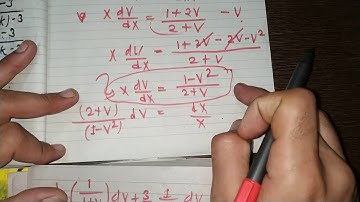 ) - 3
- 3
k - 2
x dV/dx = 1+2V/2+V - V
x dV/dx = 1+2V-2V-V²/2+V
x dV/dx = 1-V²/2+V
(2+V)/(1-V²) dV = dx/x
(1/1+V) dV + 3 1 dV